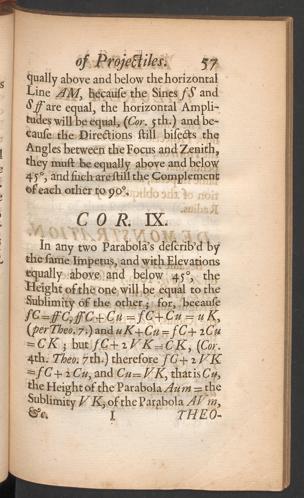 of Projectiles. 57
qually above and below the horizontal
Line AM, because the Sines fS and
Sff are equal, the horizontal Ampli-
tudes will be equal, (Cor. 5th.) and be-
cause the Directions still bisects the
Angles between the Focus and Zenith,
they must be equally above and below
45°, and such are still the Complement
of each other to 90°.
COR. IX.
In any two Parabola's describ'd by
the same Impetus, and with Elevations
equally above and below 45°, the
Height of the one will be equal to the
Sublimity of the other; for, because
fC=ffC, ffC+Cu=fC+Cu=uK,
(per Theo. 7.) and uK+Cu=fC+2Cu
=CK; but fC+2VK=CK, (Cor.
4th. Theo. 7th.) therefore fC+2VK
=fC+2Cu, and Cu=VK, that is Cu,
the Height of the Parabola Aum=the
Sublimity VK, of the Parabola AVm,
&c. I THEO-